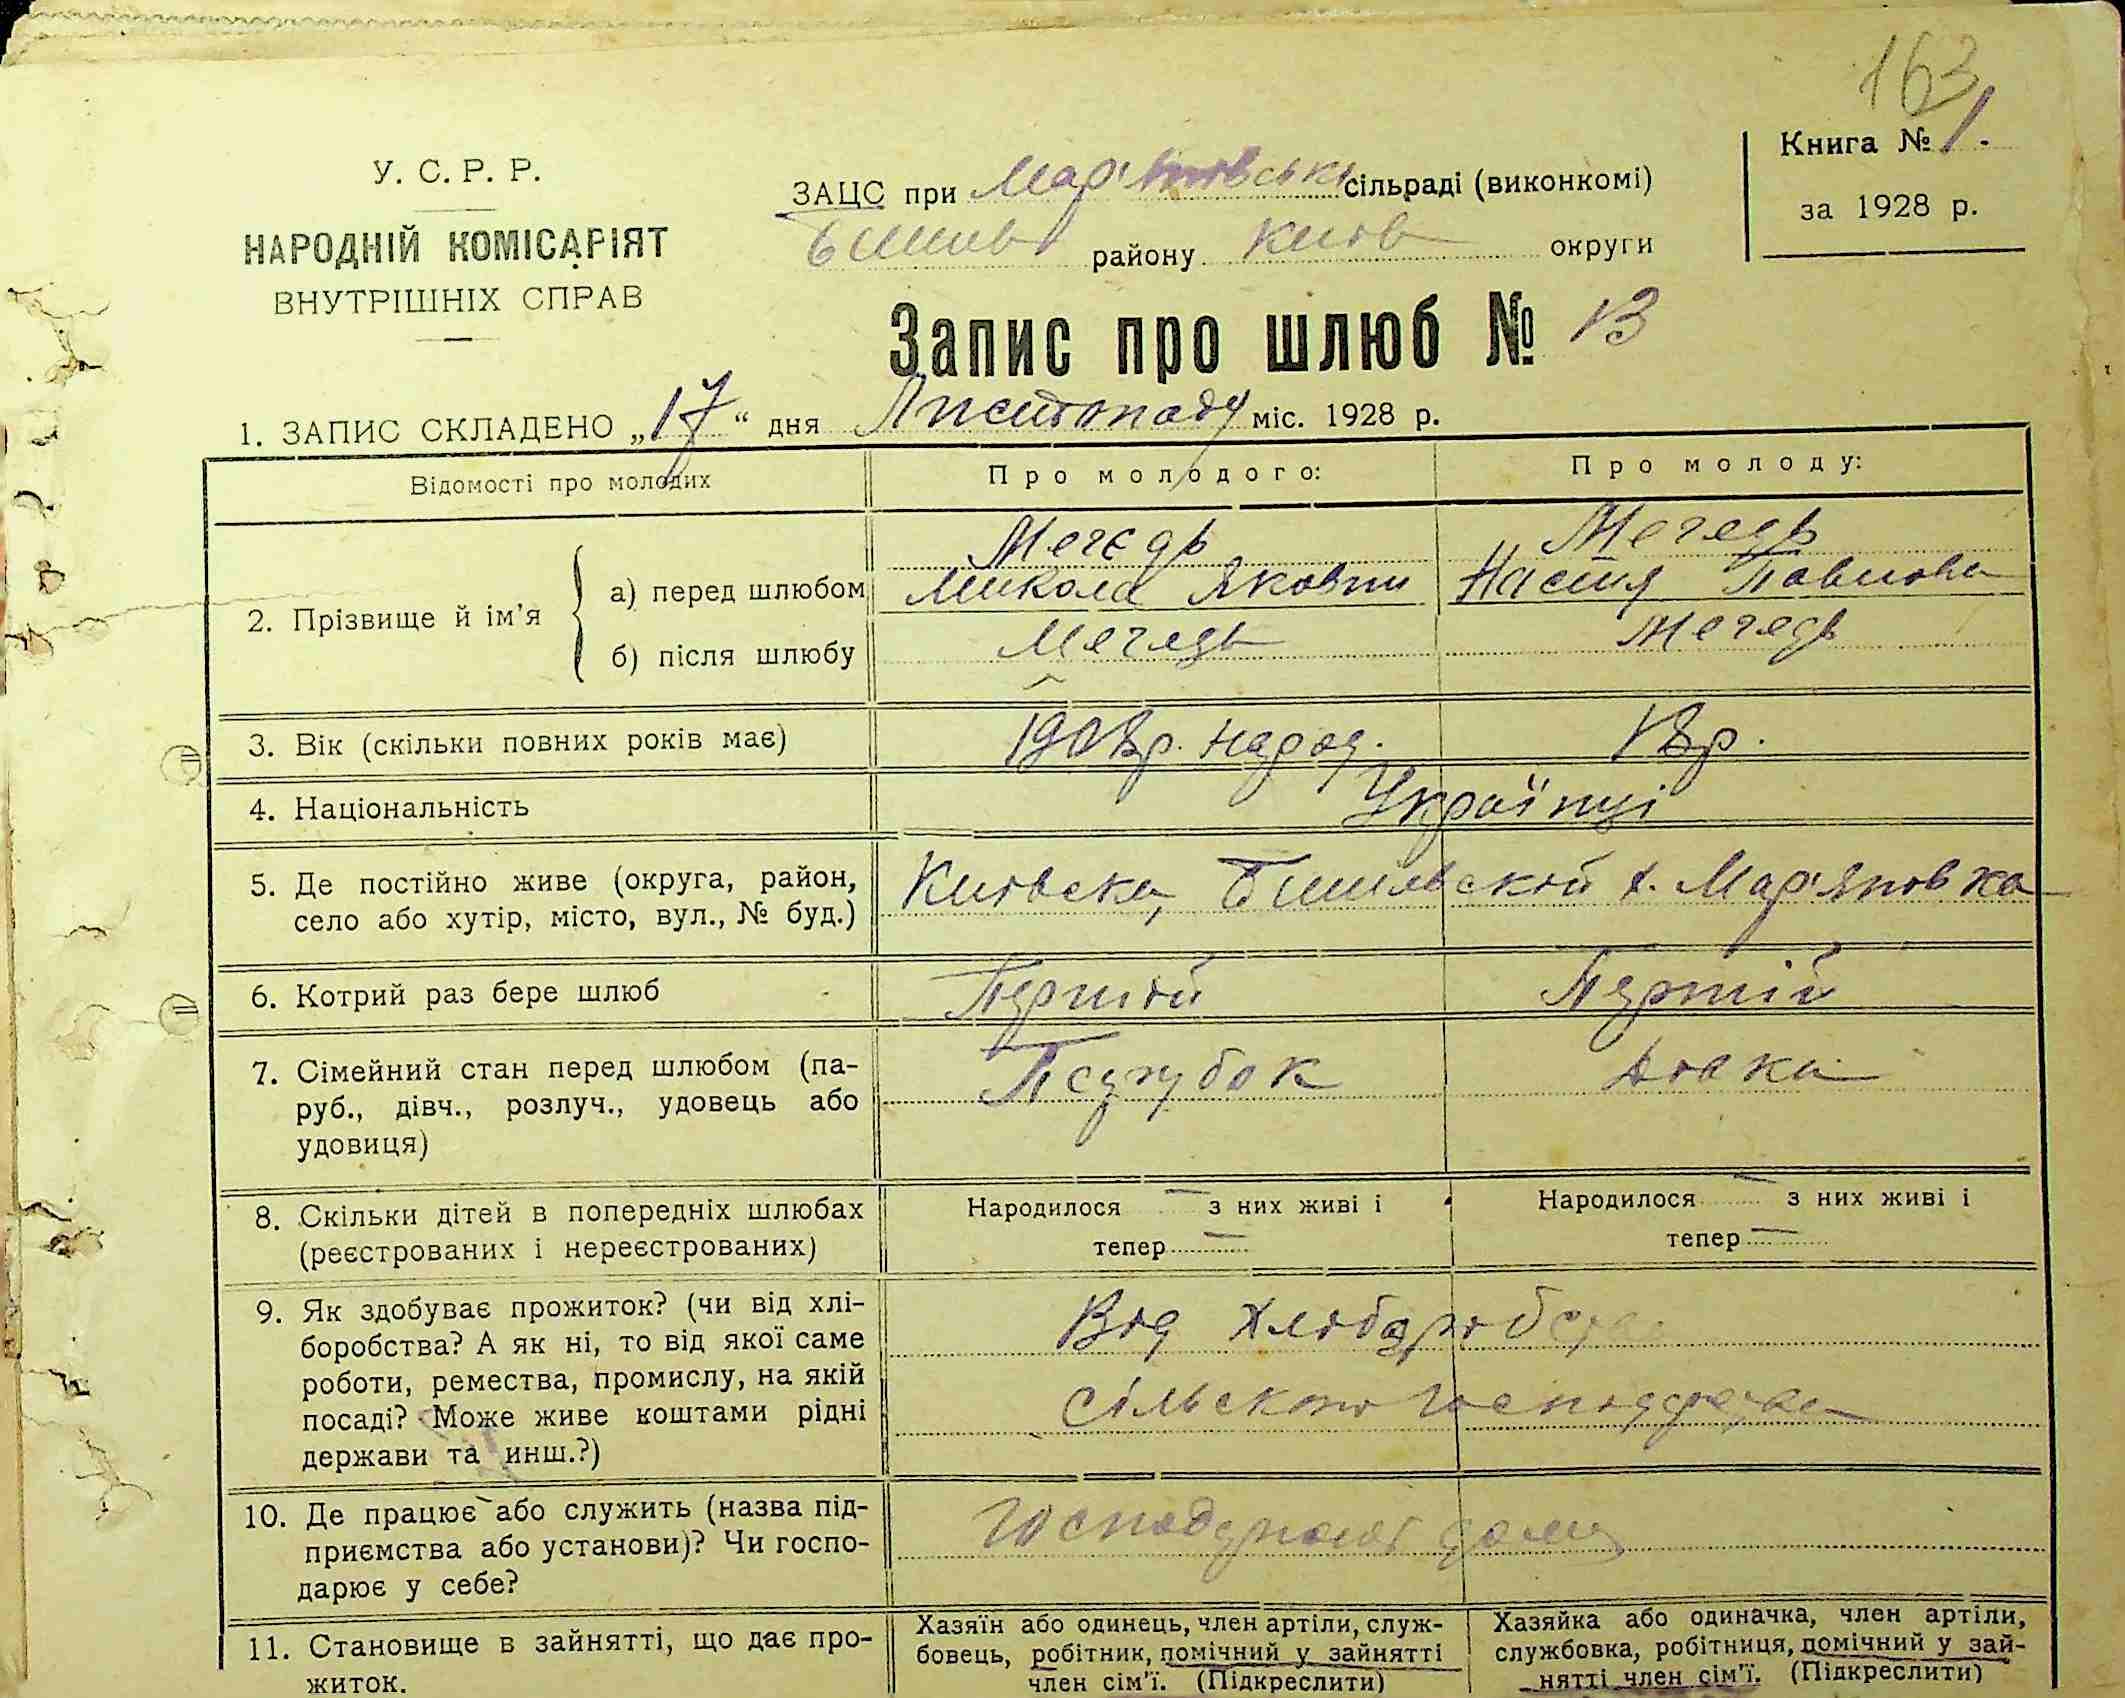 163
У. С. Р. Р.
НАРОДНІЙ КОМІСАРІЯТ
ВНУТРІШНІХ СПРАВ
ЗАЦС при Мар'янівські сільраді (виконкомі)
Бишів району Київ округи
Книга № 1.
за 1928 р.
Запис про шлюб № 13
1. ЗАПИС СКЛАДЕНО „17“ дня Листопаду міс. 1928 р.
Відомості про молодих
Про молодого:
Про молоду:
2. Прізвище й ім'я
а) перед шлюбом
Мегедь
Микола Якови
Мегедь
Настя Павлова
б) після шлюбу
Мегедь
Мегедь
3. Вік (скільки повних років має)
1908 р. народ.
18 р.
4. Національність
Українці
5. Де постійно живе (округа, район,
село або хутір, місто, вул., № буд.)
Київска, Бишівской х. Мар'яновка
6. Котрий раз бере шлюб
Перший
Перший
7. Сімейний стан перед шлюбом (па-
руб., дівч., розлуч., удовець або
удовиця)
Парубок
Дівка
8. Скільки дітей в попередніх шлюбах
(реєстрованих і нереєстрованих)
Народилося — з них живі і
тепер —
Народилося — з них живі і
тепер —
9. Як здобуває прожиток? (чи від хлі-
боробства? А як ні, то від якої саме
роботи, ремества, промислу, на якій
посаді? Може живе коштами рідні
держави та инш.?)
Від Хліборобства
сільского господарства
10. Де працює або служить (назва під-
приємства або установи)? Чи госпо-
дарює у себе?
дома
11. Становище в зайнятті, що дає про-
житок.
Хазяїн або одинець, член артіли, служ-
бовець, робітник, помічний у зайнятті
член сім'ї. (Підкреслити)
Хазяйка або одиначка, член артіли,
службовка, робітниця, помічний у зай-
нятті член сім'ї. (Підкреслити)